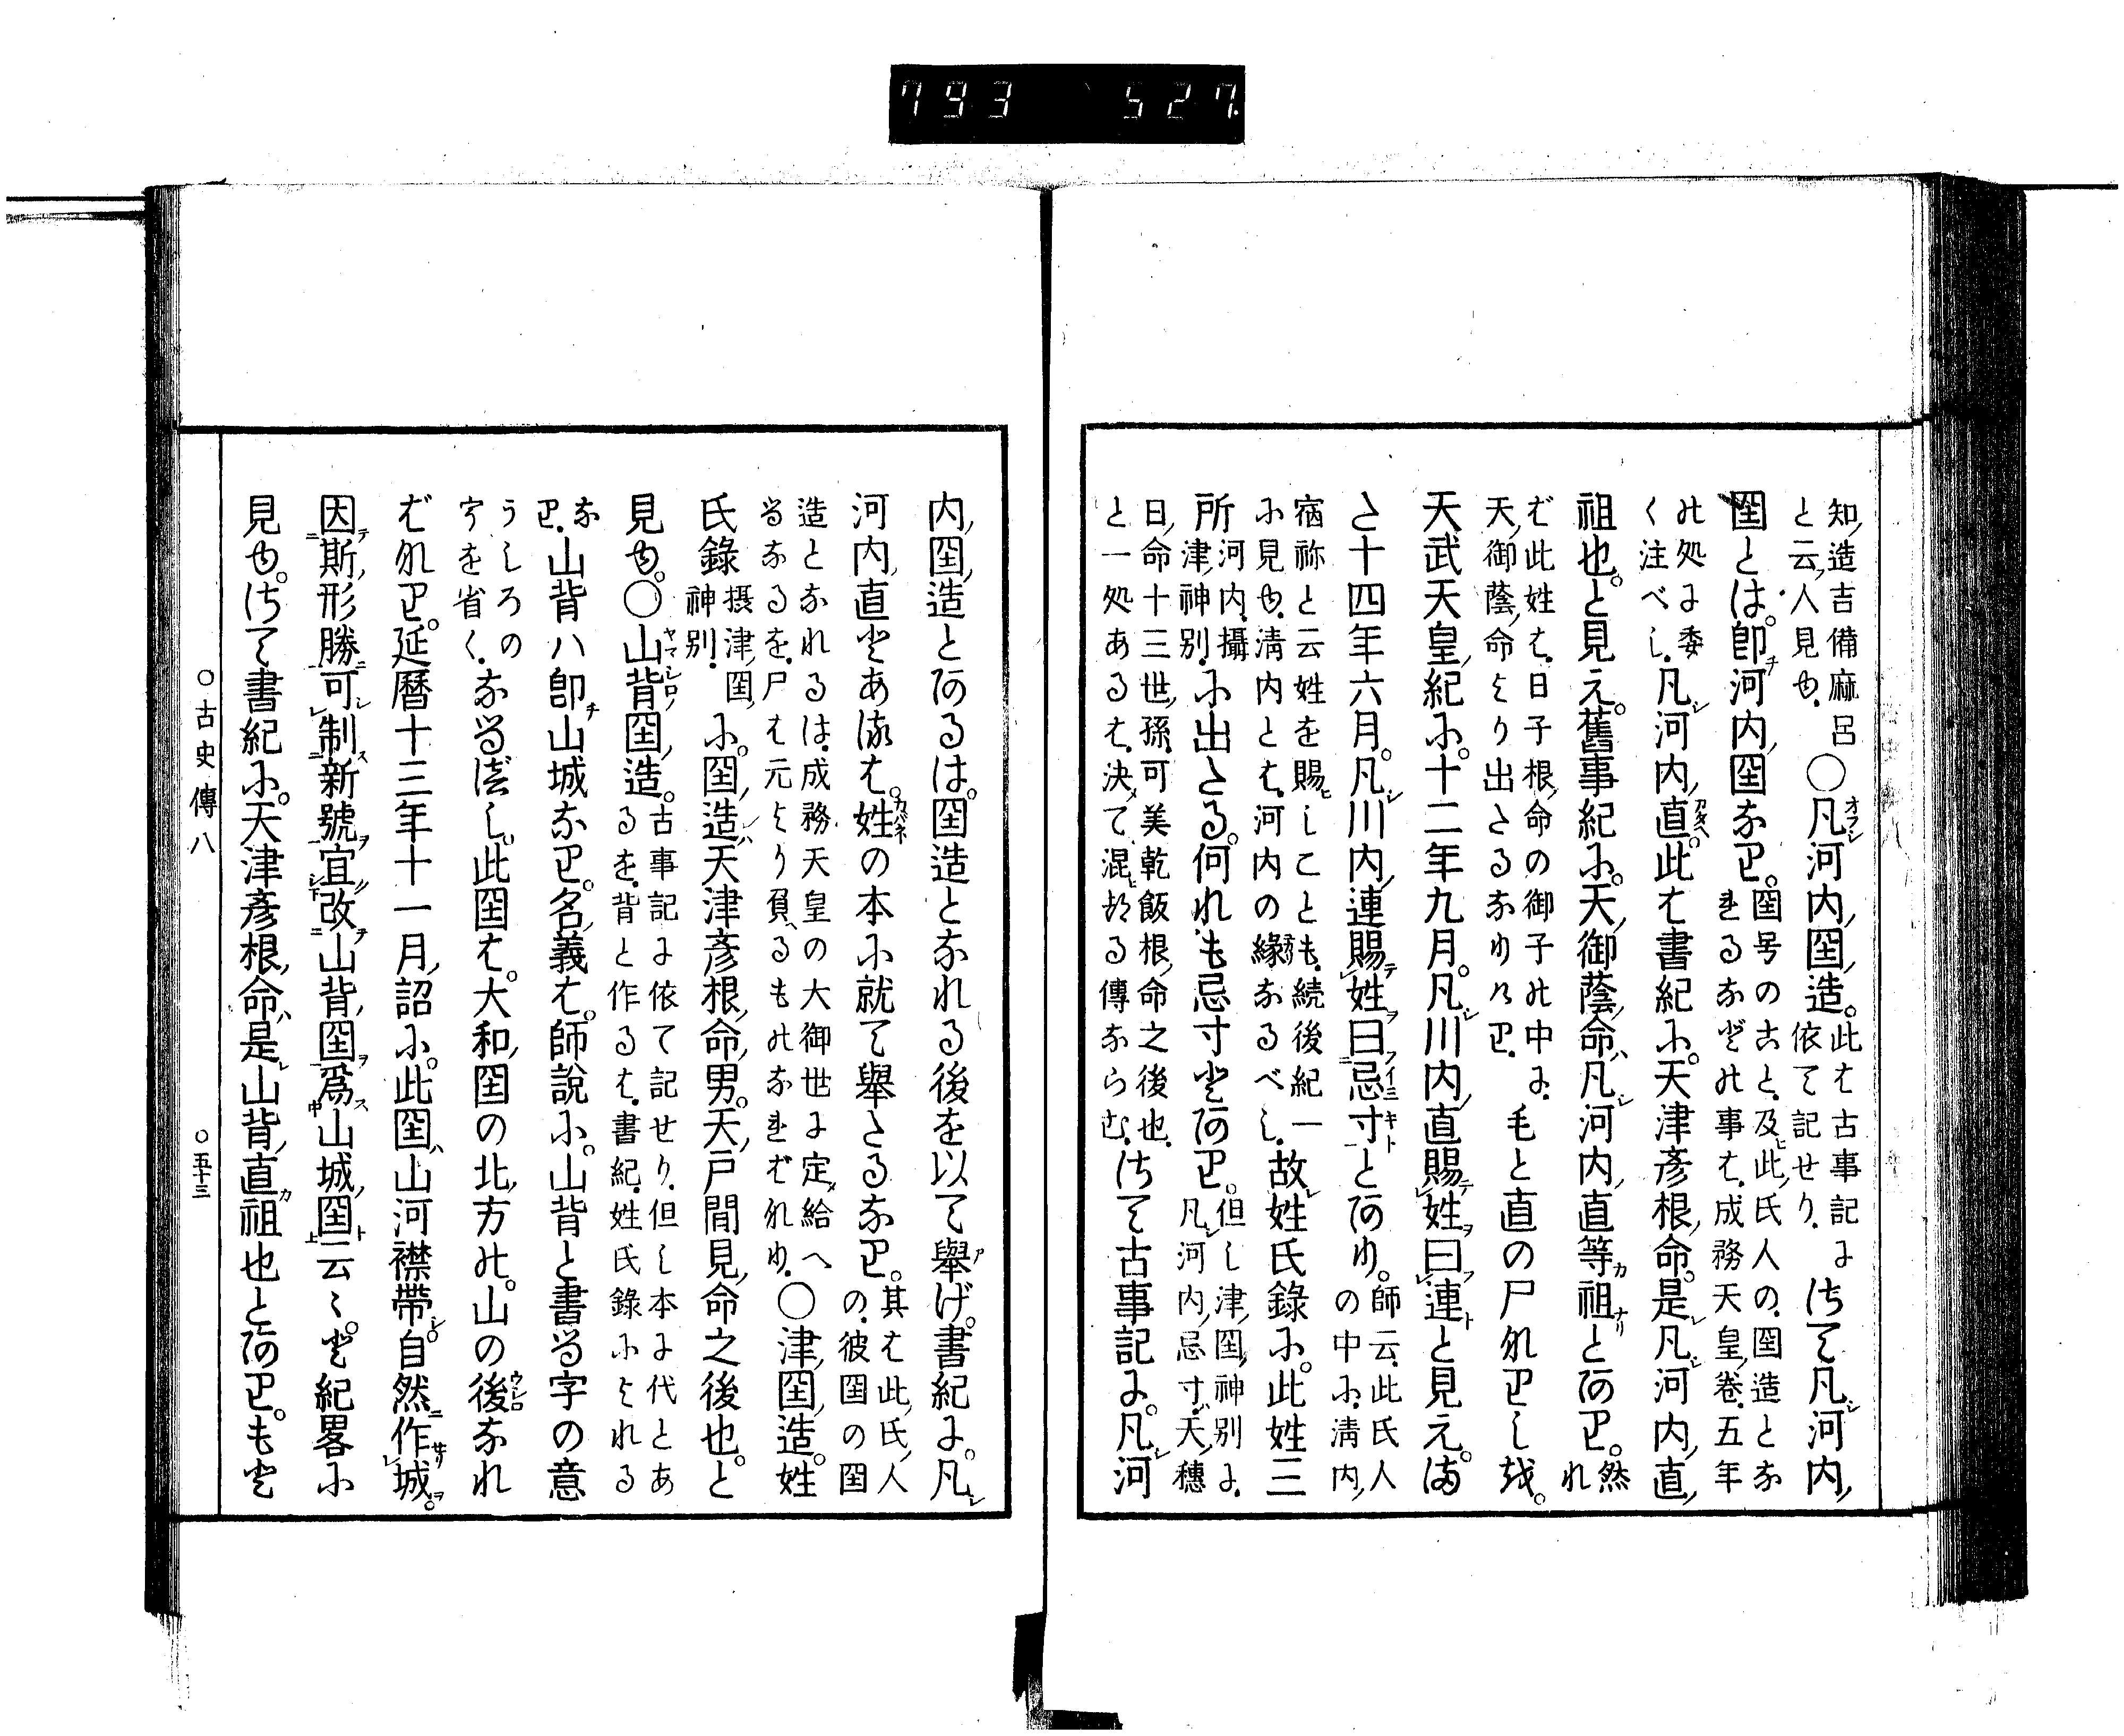 793 527
知造吉備麻呂
と云人見ゆ。
○凡河内国造。
此は古事記に
依て記せり。
さて凡河内
国とは。即河内国なり。
国号のこと。及此氏人の。国造とな
れるなどの事は。成務天皇卷。五年
の処に委
く注べし。
凡河内直。此は書紀に。天津彦根命。是凡河内直
祖也。と見え。舊事紀に。天御蔭命凡河内直等祖とあり。
然れ
ば此姓は。日子根命の御子の中に。
天御蔭命より出たるなりけり。
毛と直の尸なりしを。
天武天皇紀に。十二年九月。凡川内直賜姓曰連と見え。ま
た十四年六月。凡川内連賜姓曰忌寸とあり。
師云。此氏人
の中に。清内
宿祢と云姓を賜しことも。続後紀一
に見ゆ。清内とは。河内の縁なるべし。
故姓氏錄に。此姓三
所
河内。攝
津神別。
に出たる。何れも忌寸とあり。
但し津国神別に。
凡河内忌寸。天穗
日命十三世孫。可美乾飯根命之後也。
と一処あるは。決て混れる傳ならむ。
さて古事記に。凡河
内国造とあるは。国造となれる後を以て舉げ。書紀に。凡
河内直とあるは。姓の本に就て舉たるなり。
其は此氏人
の。彼国の国
造となれるは。成務天皇の大御世に定給へ
るなるを。尸は元より負るものなればなり。
○津国造。姓
氏錄
摂津国
神別。
に。国造天津彦根命男。天戸間見命之後也。と
見ゆ。○山背国造。
古事記に依て記せり。但し本に代とあ
るを。背と作るは。書紀。姓氏錄によれる
な
り。
山背ハ即山城なり。名義は。師説に。山背と書る字の意
うしろの
字を省く。
なるべし。此国は。大和国の北方の。山の後なれ
ばなり。延暦十三年十一月詔に。此国山河襟帶自然作城。
因斯形勝可制新號宜改山背国爲山城国云々。と紀畧に
見ゆ。さて書紀に。天津彦根命。是山背直祖也とあり。もと
○古史傳八
○五十三